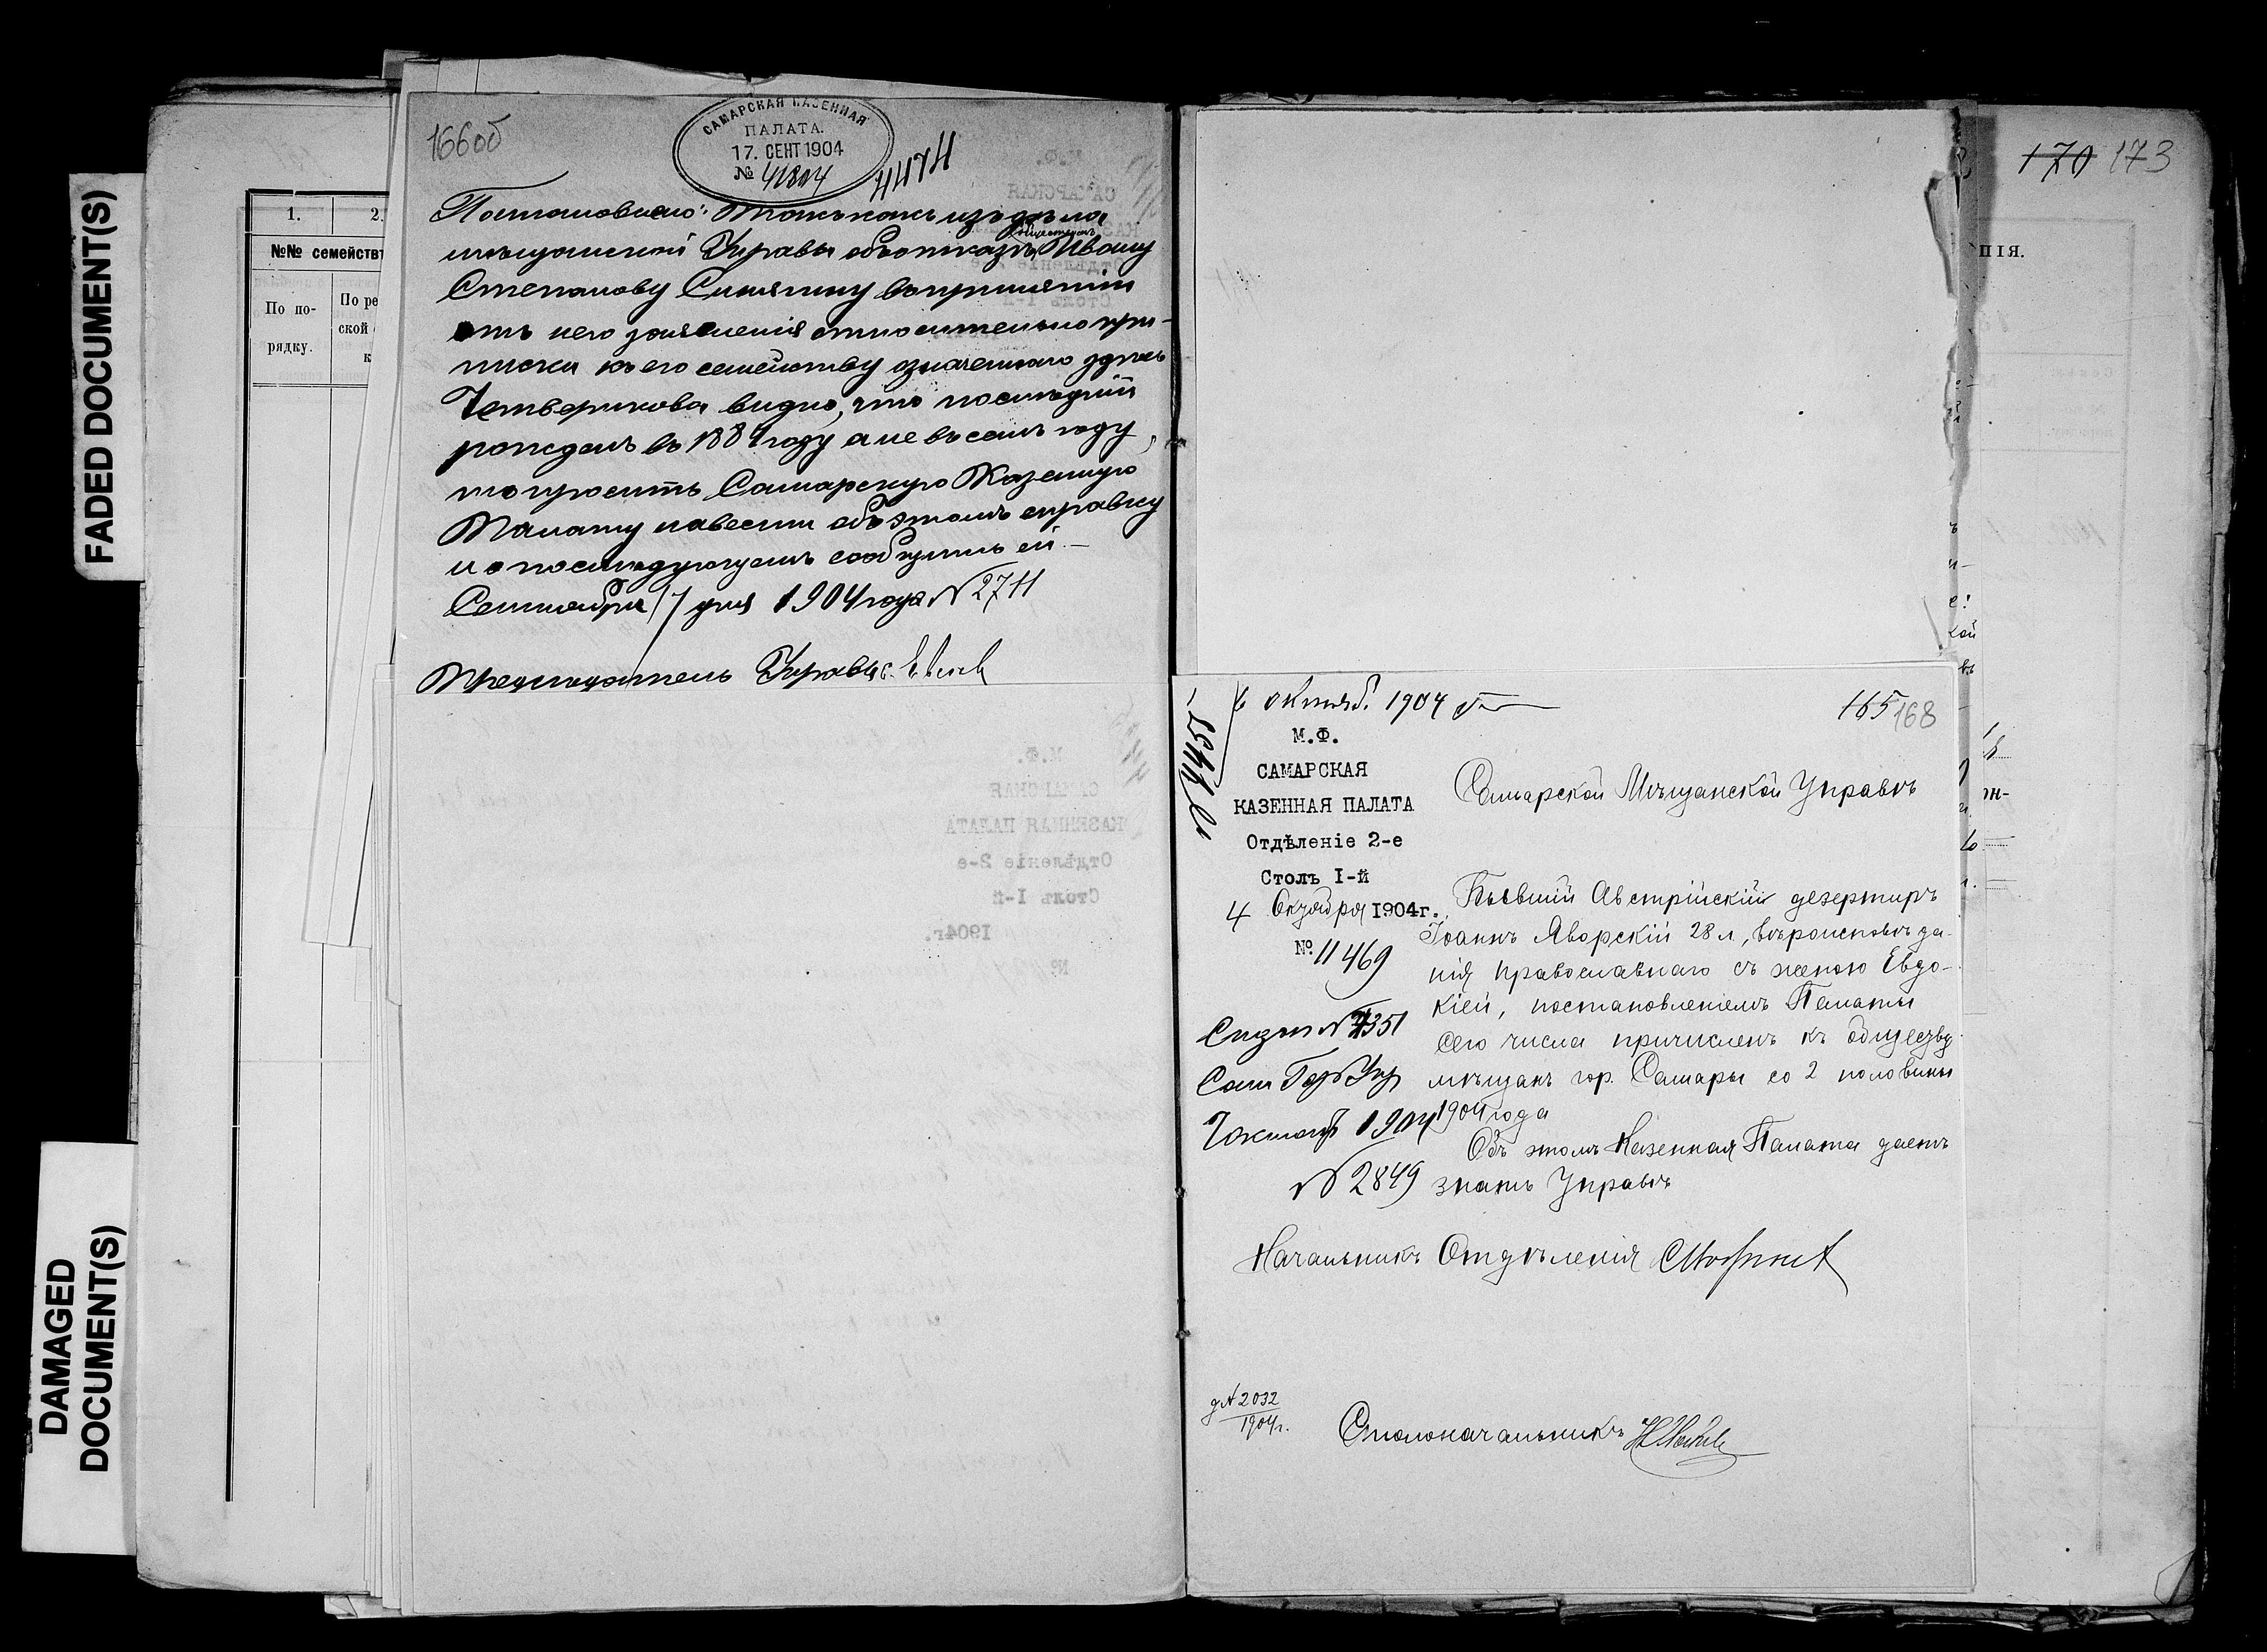 FADED DOCUMENT(S)
DAMAGED
DOCUMENT(S)
1.
2.
№№ семейств
По по-
рядку.
По ре
ской
к
166об
САМАРСКАЯ КАЗЕННАЯ
ПАЛАТА.
17. СЕНТ 1904
№ 41804
4474
Постановлено: Такъ какъ изъ дѣла
мѣщанской Управы объ отказѣ обществомъ Ивану
Степанову Синягину въ принятіи
отъ него заявленія относительно при-
писки къ его семейству означеннаго здѣсь
Четверикова видно, что послѣдній
рожденъ въ 1884 году а не въ семъ году,
то просить Самарскую Казенную
Палату навести объ этомъ справку
и о послѣдующемъ сообщить ей.—
Сентября 17 дня 1904 года № 2711
Предсѣдатель Управы
170 173
ПІЯ.
6 октяб. 1904 г
165 168
М.Ф.
САМАРСКАЯ
КАЗЕННАЯ ПАЛАТА
Отдѣленіе 2-е
Столъ I-й
4 Октября 1904г.
№ 11469
Самарской Мѣщанской Управѣ
Бывшій Австрійскій дезертиръ
Іоаннъ Яворскій 28 л, вѣроисповѣда-
нія православнаго съ женою Евдо-
кіей, постановленіемъ Палаты
сего числа причисленъ къ обществу
мѣщанъ гор. Самары со 2 половины
1904 года
Объ этомъ Казенная Палата даетъ
знать Управѣ
Сам Гор Упр
7 октяб 1904
№ 2849
Начальникъ Отдѣленія
д № 2032
1904г.
Столоначальникъ